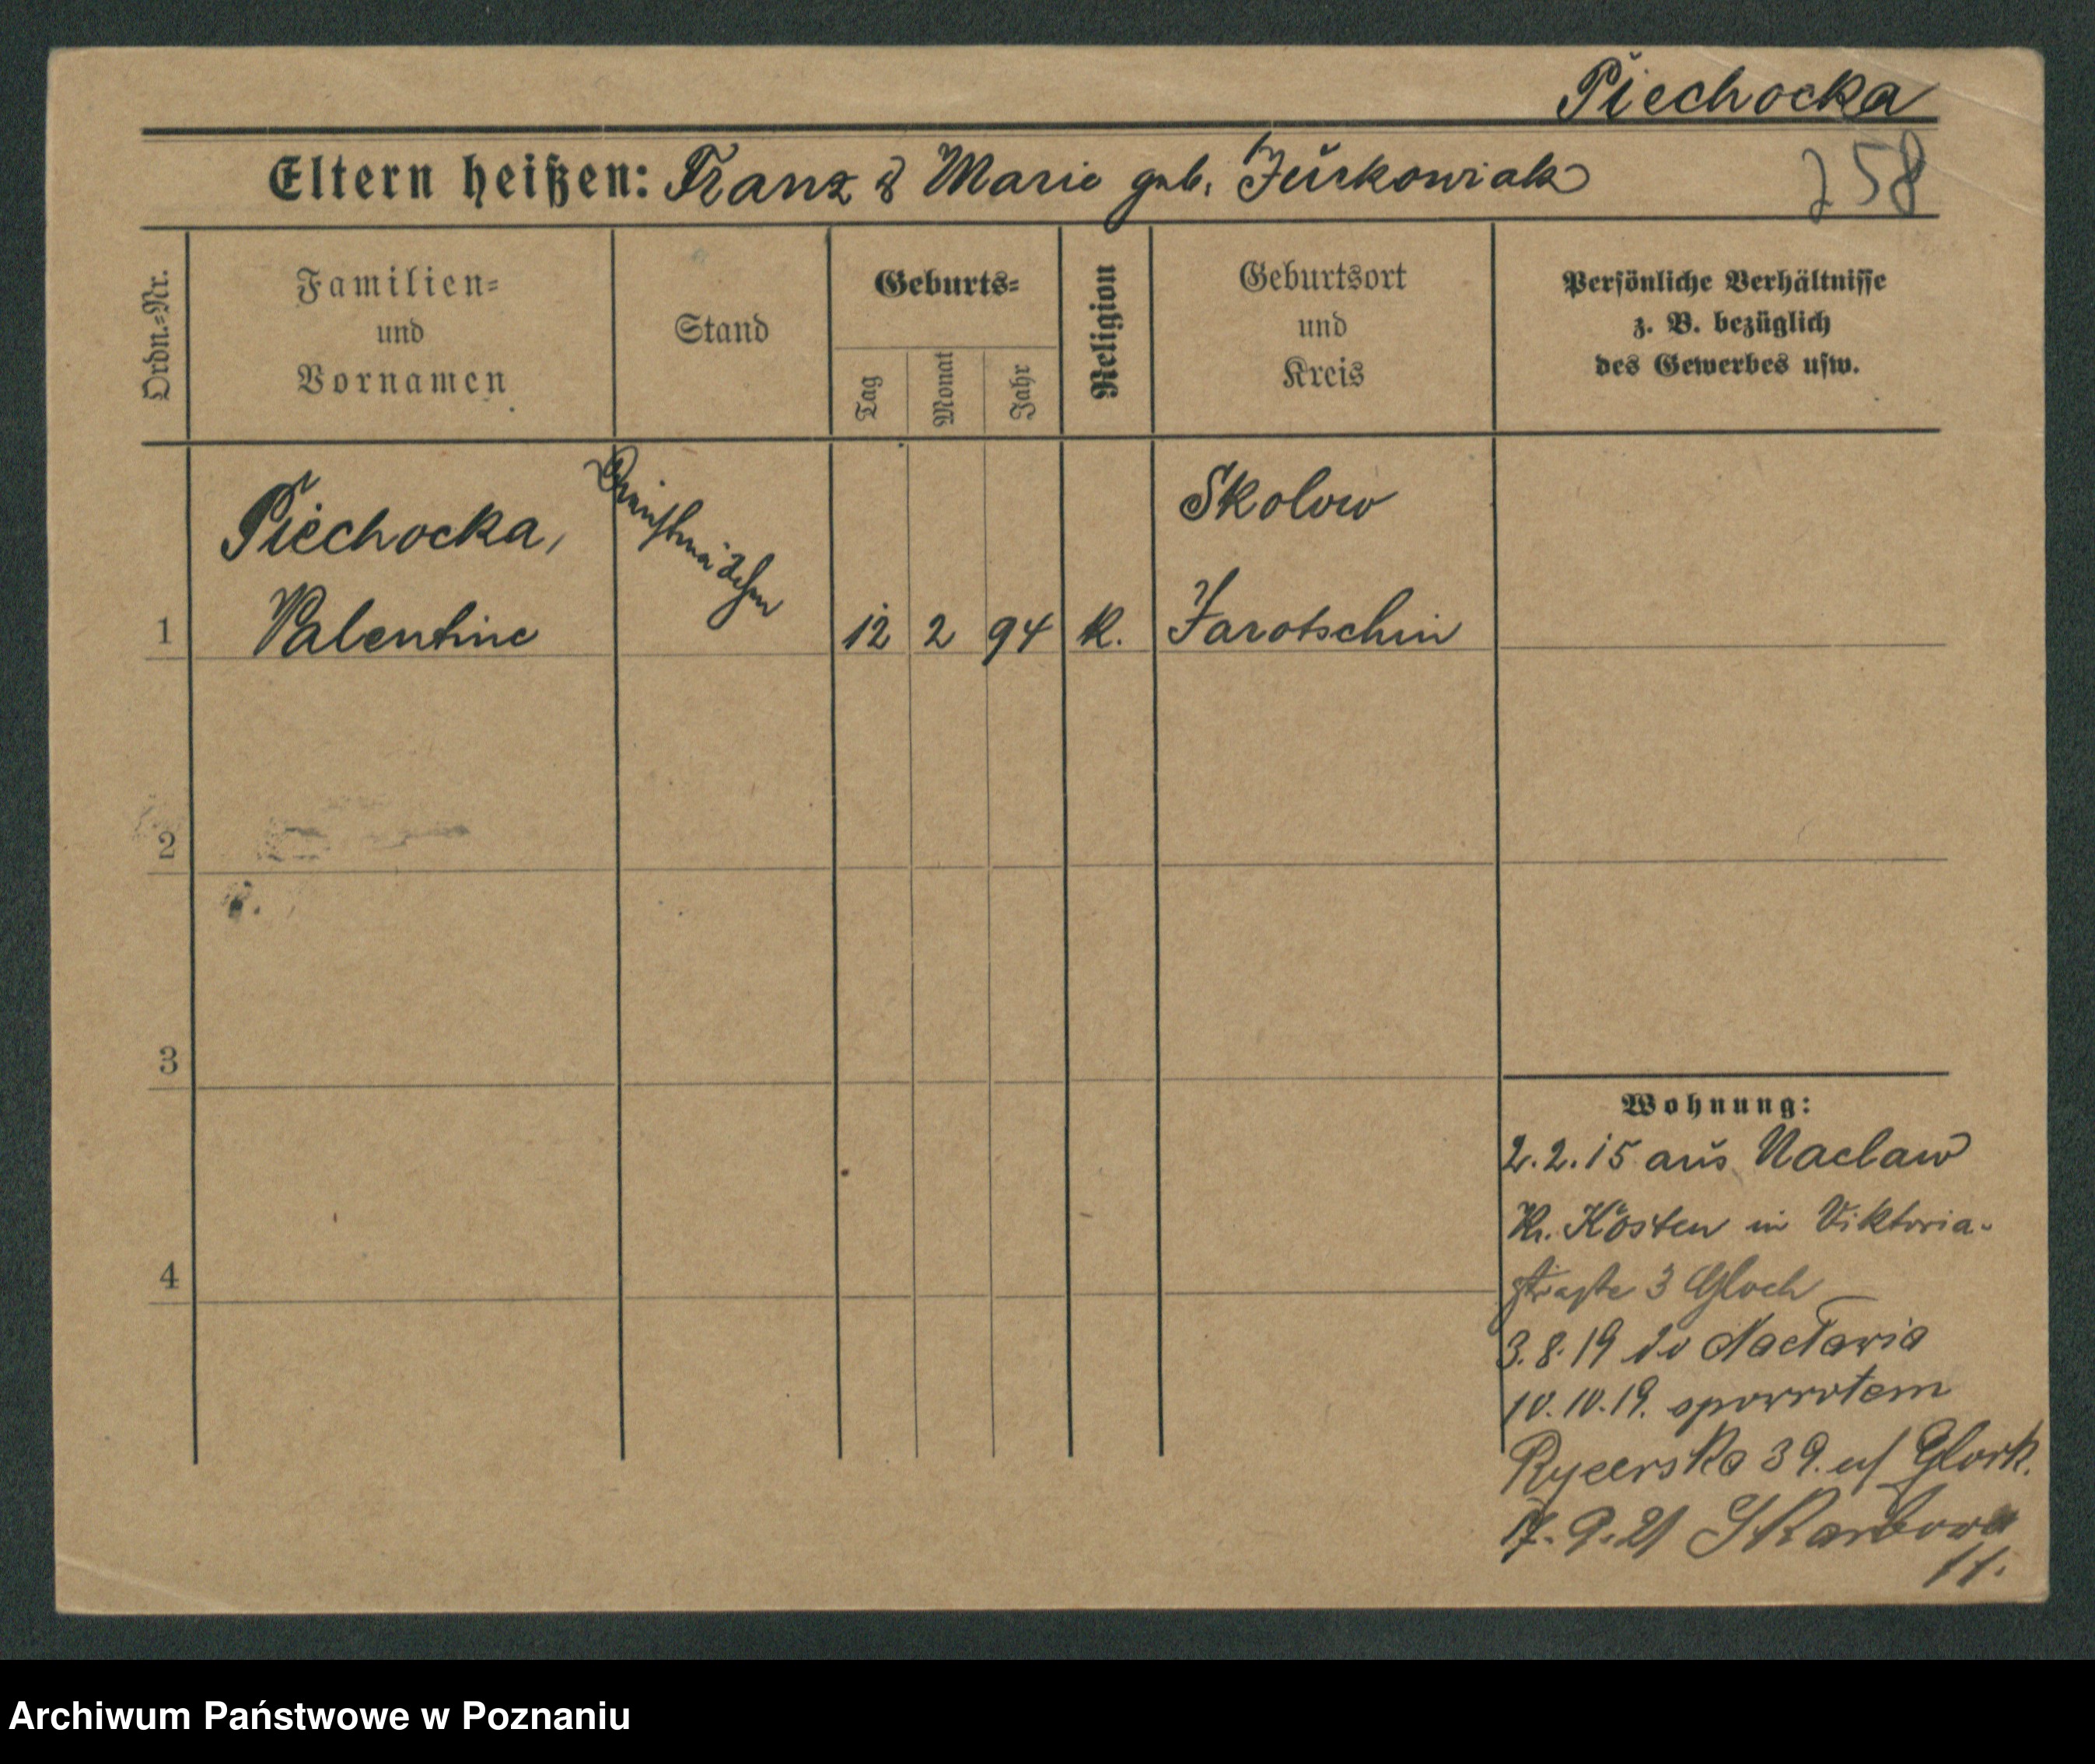 Piechocka
Eltern heißen: Franz & Marie geb. Jurkowiak
258
Ordn.=Nr.
Familien=
und
Vornamen
Stand
Geburts=
Tag
Monat
Jahr
Religion
Geburtsort
und
Kreis
Persönliche Verhältnisse
z. B. bezüglich
des Gewerbes usw.
1
Piechocka,
Valentine
Dienstmädchen
12 2 94 k.
Skolow
Jarotschin
2
3
4
Wohnung:
2.2.15 aus Naclaw
Kr. Kosten in Viktoria-
straße 3 Gloch
3.8.19 do Nacławia
10.10.19. spowrotem
Rycerska 39. Glock.
17.9.21 Skarbowa
11.
Archiwum Państwowe w Poznaniu